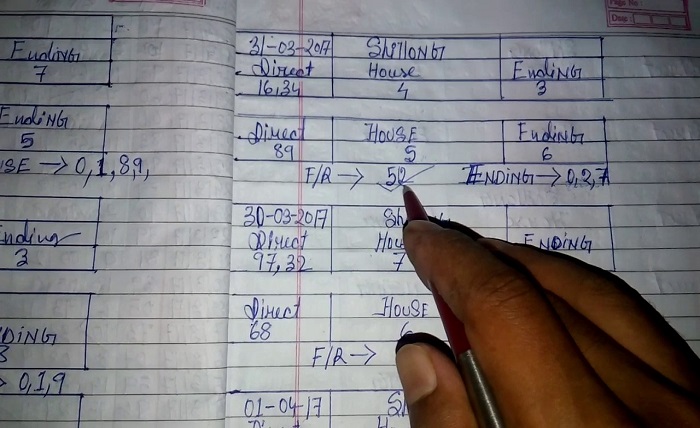 Ending
7
Ending
5
USE → 0,1,8,9,
Ending
3
DING
3
→ 0,1,9
Page No :
Date :
31-03-2017 SHILLONG
Direct House Ending
16,34 4 3
Direct HOUSE Ending
89 5 6
F/R → 52 ENDING → 0,2,7
30-03-2017
Direct ENDING
97,32 7
Direct HOUSE
68 6
F/R →
01-04-17